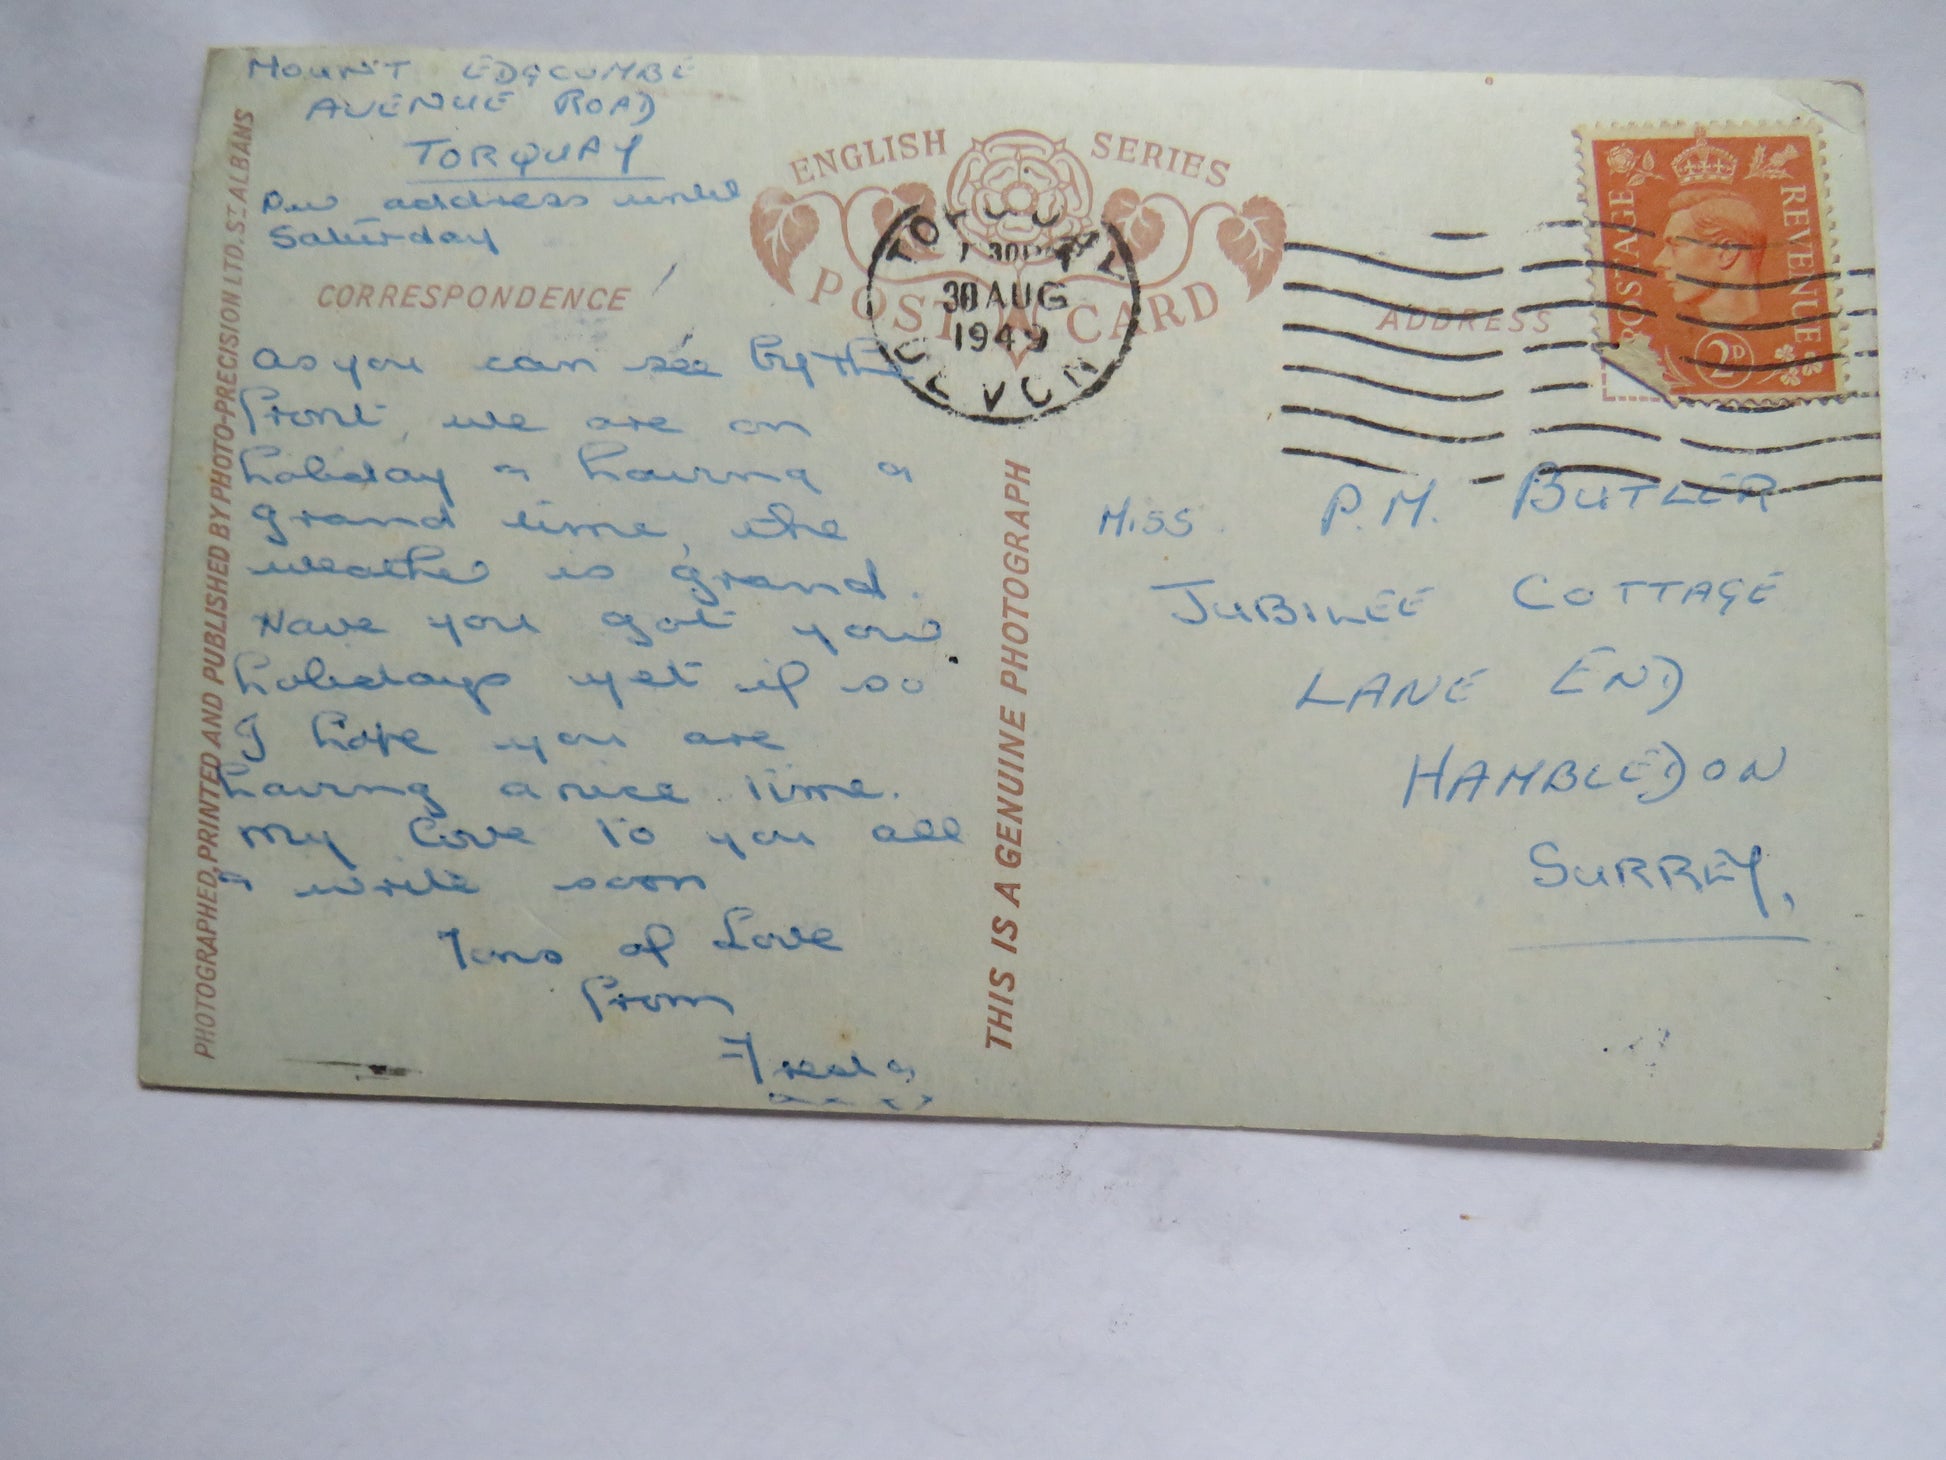 MOUNT EDGCUMBE
AVENUE ROAD
TORQUAY
Our address until
Saturday
CORRESPONDENCE
As you can see by the
front, we are on
holiday & having a
grand time, the
weather is grand.
Have you got your
holidays yet if so
I hope you are
having a nice time.
My love to you all
& write soon
Tons of Love
From
Freda
PHOTOGRAPHED, PRINTED AND PUBLISHED BY PHOTO-PRECISION LTD. ST. ALBANS
ENGLISH SERIES
POST CARD
TORQUAY
30 AUG
1949
DEVON
THIS IS A GENUINE PHOTOGRAPH
ADDRESS
POSTAGE
REVENUE
2D
MISS P.M. BUTLER
JUBILEE COTTAGE
LANE END
HAMBLEDON
SURREY,